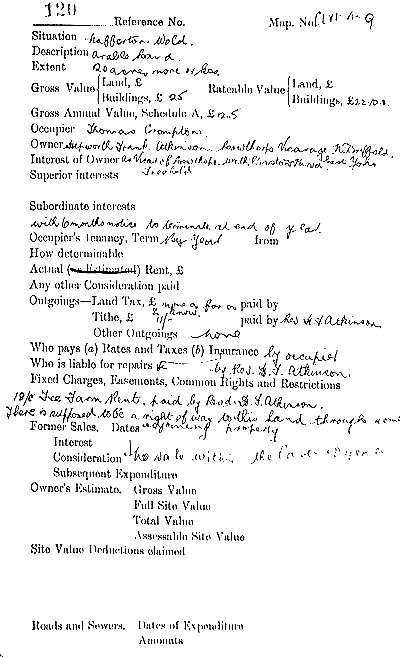 120 Reference No. Map. No.
Situation Nafferton Wold.
Description arable land
Extent 20 acres more or less
Gross Value { Land, £ Rateable Value { Land, £
Buildings, £ 25 Buildings, £22.10.0.
Gross Annual Value, Schedule A, £ 25
Occupier Thomas Crompton.
Owner Hepworth Frank Atkinson Vicarage
Interest of Owner as Vicar of with
Superior interests Freehold
Subordinate interests
with 6 months notice to terminate at end of year
Occupier's Tenancy, Term Per Year from
How determinable
Actual (or Estimated) Rent, £
Any other Consideration paid
Outgoings—Land Tax, £ none as far as paid by
I know.
Tithe, £ paid by Rev H F Atkinson
Other Outgoings none
Who pays (a) Rates and Taxes (b) Insurance by occupier
Who is liable for repairs by Rev. H. F. Atkinson.
Fixed Charges, Easements, Common Rights and Restrictions
Fee Farm Rent. paid by Rev. H. F. Atkinson.
There is supposed to be a right of way to this land through some
Former Sales. Dates adjoining property
Interest
Consideration no sale within the last years
Subsequent Expenditure
Owner's Estimate. Gross Value
Full Site Value
Total Value
Assessable Site Value
Site Value Deductions claimed
Roads and Sewers. Dates of Expenditure
Amounts